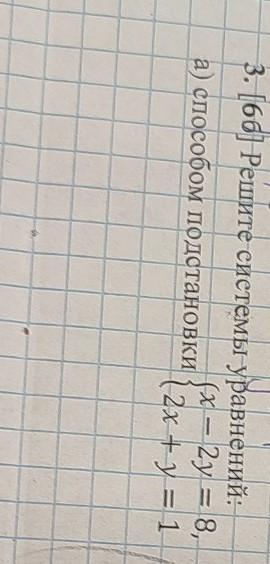 3. [6б] Решите системы уравнений:
а) способом подстановки {x − 2y = 8,
2x + y = 1